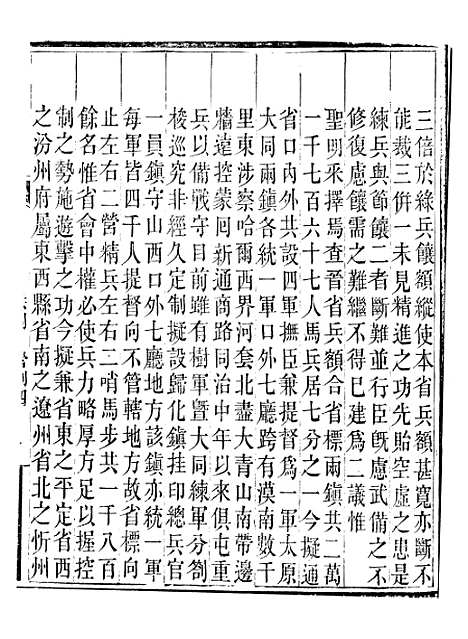 三倍於綠兵饟額縱使本省兵額甚寬亦斷不
能裁三併一未見精進之功先貽空虛之患是
練兵與節饟二者斷難並行臣旣慮武備之不
修復慮饟需之難繼不得已建為二議惟
聖明采擇焉查晉省兵額合省標兩鎮共二萬
一千七百六十七人馬兵居七分之一今擬通
省口內外共設四軍撫臣兼提督為一軍太原
大同兩鎮各統一軍口外七廳跨有漠南數千
里東涉察哈爾西界河套北盡大青山南帶邊
牆遠控蒙囘新通商路同治中年以來俱屯重
兵以備戰守目前雖有樹軍曁大同練軍分劄
梭巡究非經久定制擬設歸化鎮挂印總兵官
一員鎮守山西口外七廳地方該鎮亦統一軍
每軍皆四千人提督向不管轄地方故省標向
止左右二營精兵左右二哨馬步共一千八百
餘名惟省會中權必使兵力略厚方足以握控
制之勢施遊擊之功今擬兼省東之平定省西
之汾州府屬東西縣省南之遼州省北之忻州